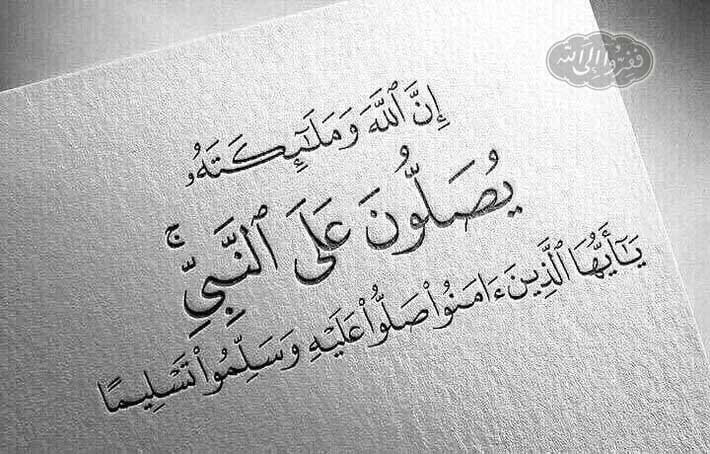 ففروا إلى الله
إِنَّ ٱللَّهَ وَمَلَـٰٓئِكَتَهُۥ
يُصَلُّونَ عَلَى ٱلنَّبِىِّ ۚ
يَـٰٓأَيُّهَا ٱلَّذِينَ ءَامَنُوا۟ صَلُّوا۟ عَلَيْهِ وَسَلِّمُوا۟ تَسْلِيمًا